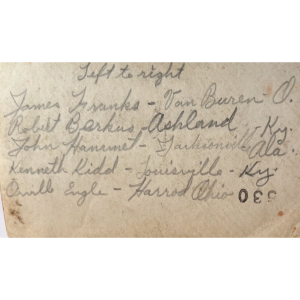 Left to right
James Franks - Van Buren O.
Robert Barkus - Ashland - Ky.
John Hammel - Jacksonville Ala.
Kenneth Kidd - Louisville - Ky.
Orville Engle - Harrod Ohio 530